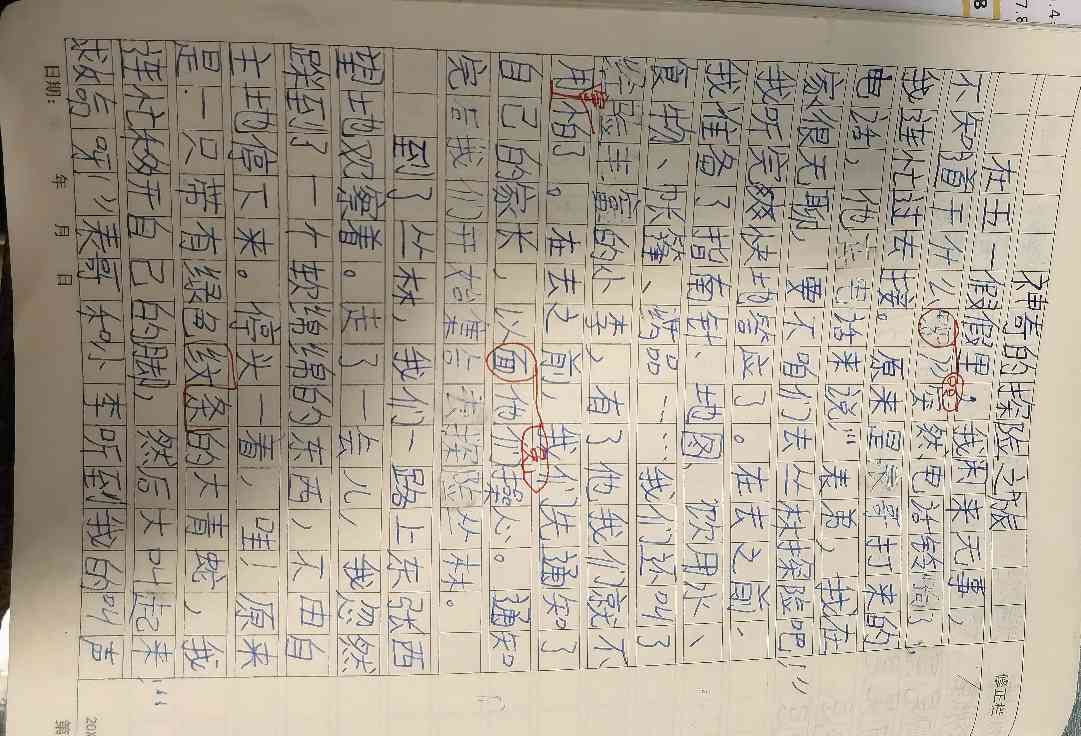 神奇的探险之旅
在五一假期里，我闲来无事，
不知道干什么。忽然电话铃响了，
我连忙过去接。原来是表哥打来的
电话，他在电话来说“表弟，我在
家很无聊，要不咱们去丛林探险吧”
我听完爽快地答应了。在去之前、
我准备了指南针、地图、饮用水、
食物、帐篷、药品……我们还叫了
经验丰富的小李，有了他我们就不
用怕了。在去之前，我们先通知了
自己的家长，以面他们操心。通知
完后我们开始准备去探险丛林。
到了丛林，我们一路上东张西
望地观察着。走了一会儿，我忽然
踩到了一个软绵绵的东西，不由自
主地停下来。停头一看，哇！原来
是一只带有绿色纹条的大青蛇，我
连忙移开自己的脚，然后大叫起来
救命呀！”表哥和小李听到我的叫声
修正栏
日期： 年 月 日
第